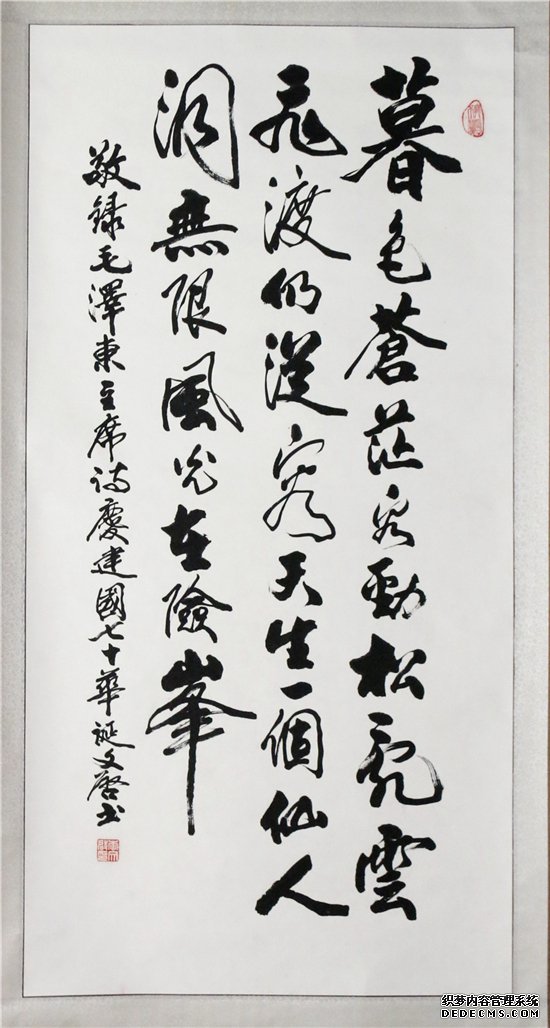 暮色蒼茫看勁松亂雲
飛渡仍從容天生一個仙人
洞無限風光在險峯
敬録毛澤東主席詩慶建國七十華誕文啓書
织梦内容管理系统
DEDECMS.COM